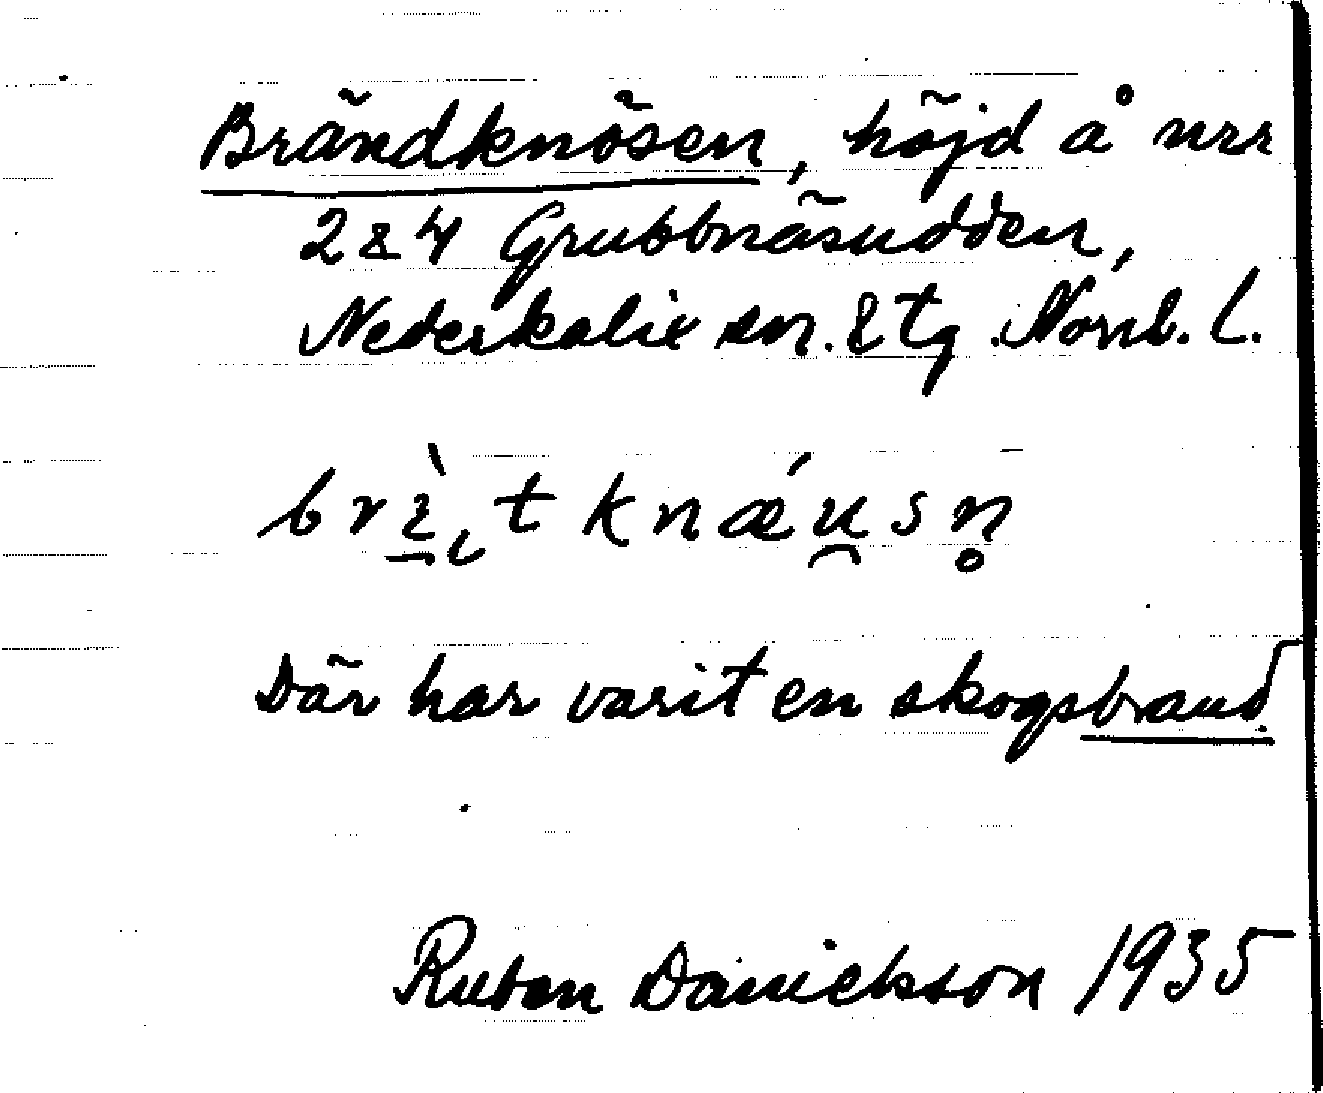 Brändknösen, höjd å nrr
2 & 4 Grubbnäsudden,
Nederkalix sn. & tg. Norrb. l.
brɩ̀t knǽu̯sn̥
Där har varit en skogsbrand.
Ruben Danielsson 1935